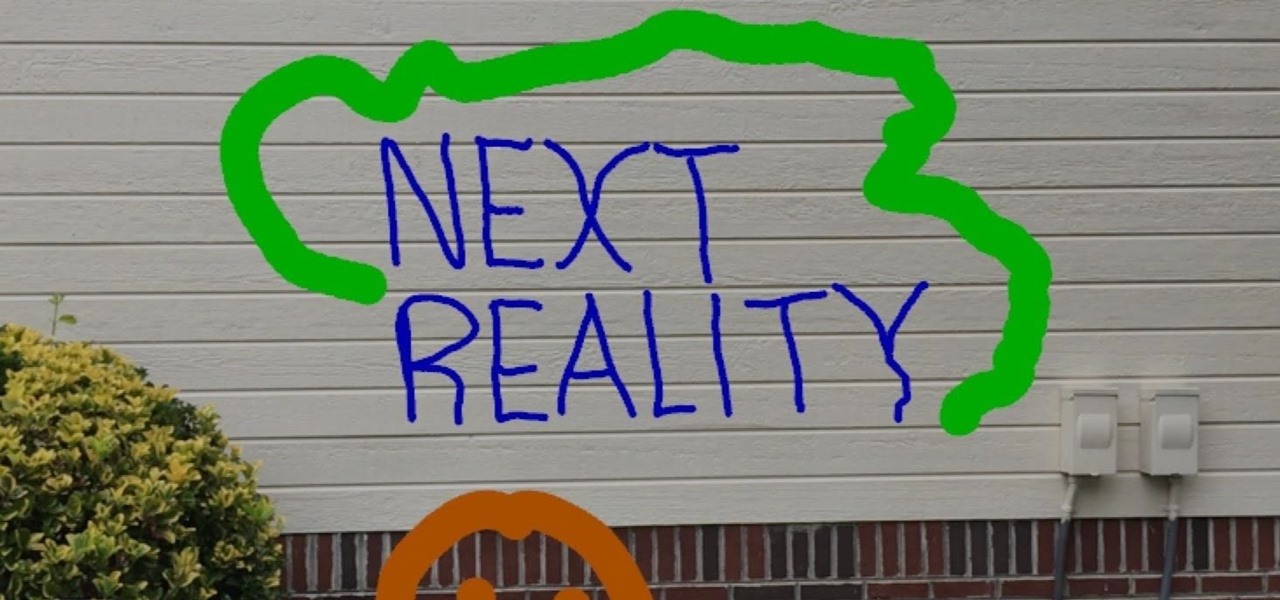 NEXT
REALITY